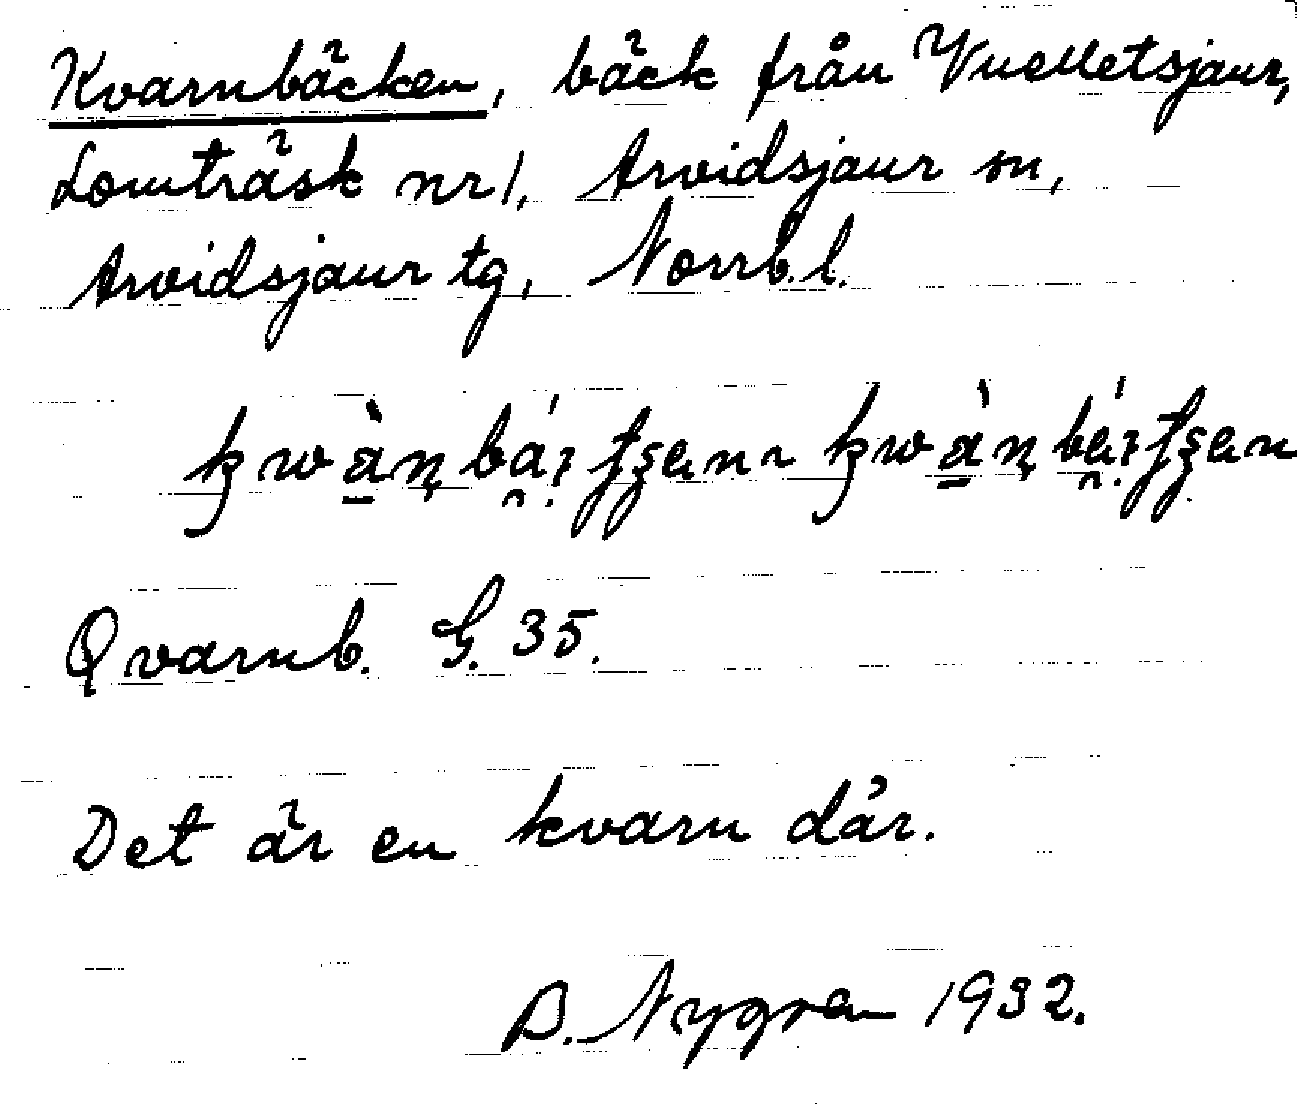 Kvarnbäcken, bäck från Vuolletsjaur,
Lomträsk nr 1, Arvidsjaur sn,
Arvidsjaur tg, Norrb. l.
Qvarnb. G. 35.
Det är en kvarn där.
B. Nygren 1932.